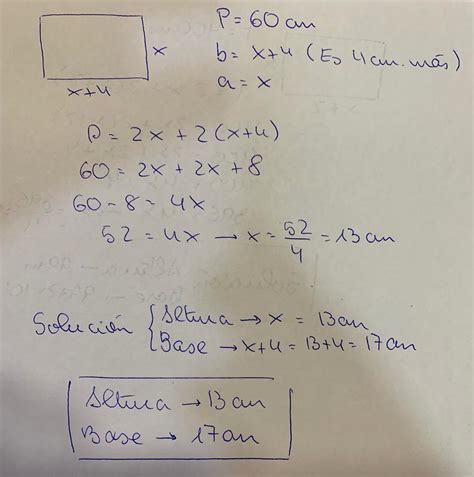 P = 60 cm
x
b = x+4 (Es 4 cm. más)
x+4
a = x
P = 2x + 2(x+4)
60 = 2x + 2x + 8
60 - 8 = 4x
52 = 4x → x = 52/4 = 13 cm
Solución { Altura → x = 13 cm
Base → x+4 = 13+4 = 17 cm
Altura → 13 cm
Base → 17 cm